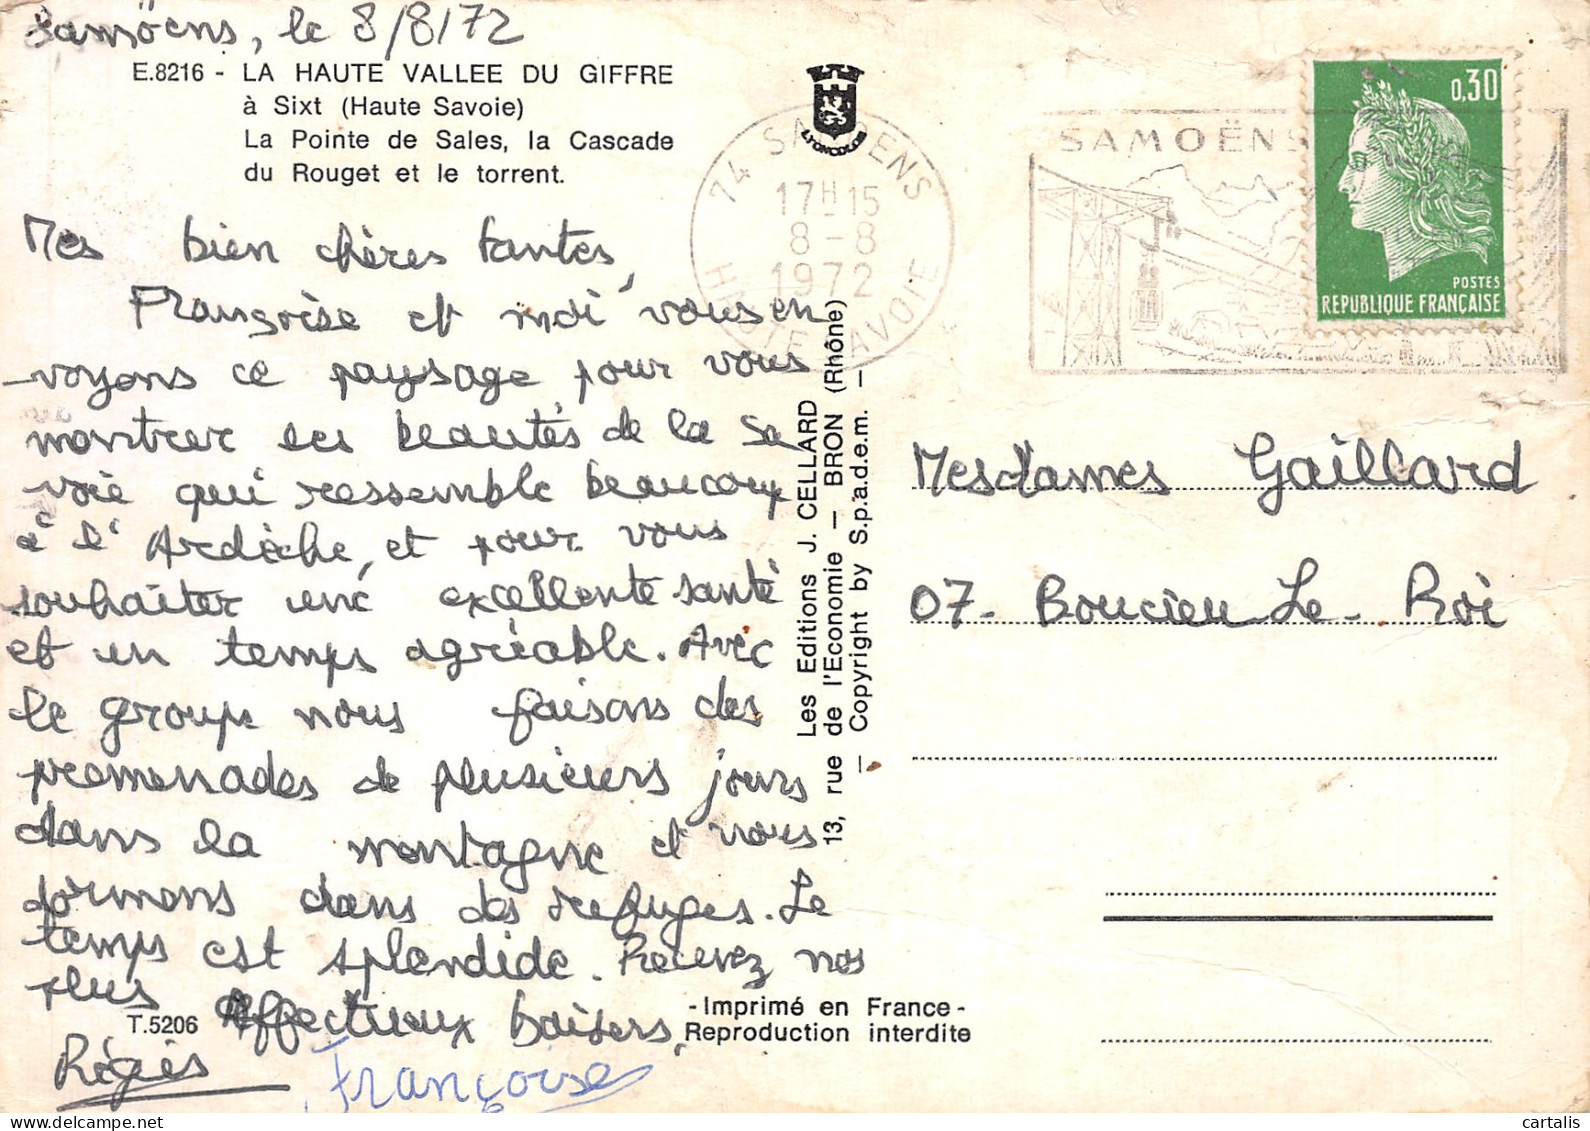 Samöens, le 8/8/72
E.8216 - LA HAUTE VALLEE DU GIFFRE
à Sixt (Haute Savoie)
La Pointe de Sales, la Cascade
du Rouget et le torrent.
Mes bien chères tantes,
Françoise et moi vous en
voyons ce paysage pour vous
montrer les beautés de la Sa
voie qui ressemble beaucoup
à l'Ardèche, et pour vous
souhaiter une excellente santé
et un temps agréable. Avec
le groupe nous faisons des
promenades de plusieurs jours
dans la montagne et nous
dormons dans des refuges. Le
temps est splendide. Recevez nos
plus affectueux baisers,
Régis
Françoise
T.5206
LYONCOLOR
74 SAMOENS
17H15
8-8
1972
HAUTE SAVOIE
SAMOËNS
0,30
POSTES
REPUBLIQUE FRANÇAISE
Les Editions J. CELLARD
13, rue de l'Economie — BRON (Rhône)
— Copyright by S.p.a.d.e.m. —
Mesdames Gaillard
07- Boucieu-Le-Roi
-Imprimé en France-
Reproduction interdite
cartalis